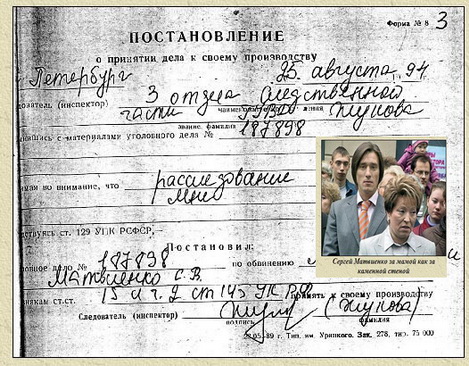 Форма № 8 3
ПОСТАНОВЛЕНИЕ
о принятии дела к своему производству
Петербург 25 августа 94
дователь (инспектор) 3 отдела следственной
части Жукова
звание, фамилия
вшись с материалами уголовного дела № 187898
мая во внимание, что расследование
мне
дствуясь ст. 129 УПК РСФСР,
Постановил:
вное дело № 187898 по обвинению
Матвиенко С.В
знакам ст.ст. 15 и г. 2 ст 145 УК РФ принять к своему производству
Следователь (инспектор) (Жукова)
подпись фамилия
28.05.89 г. Тип. им. Урицкого. Зак. 278, тир. 75 000
Сергей Матвиенко за мамой как за
каменной стеной